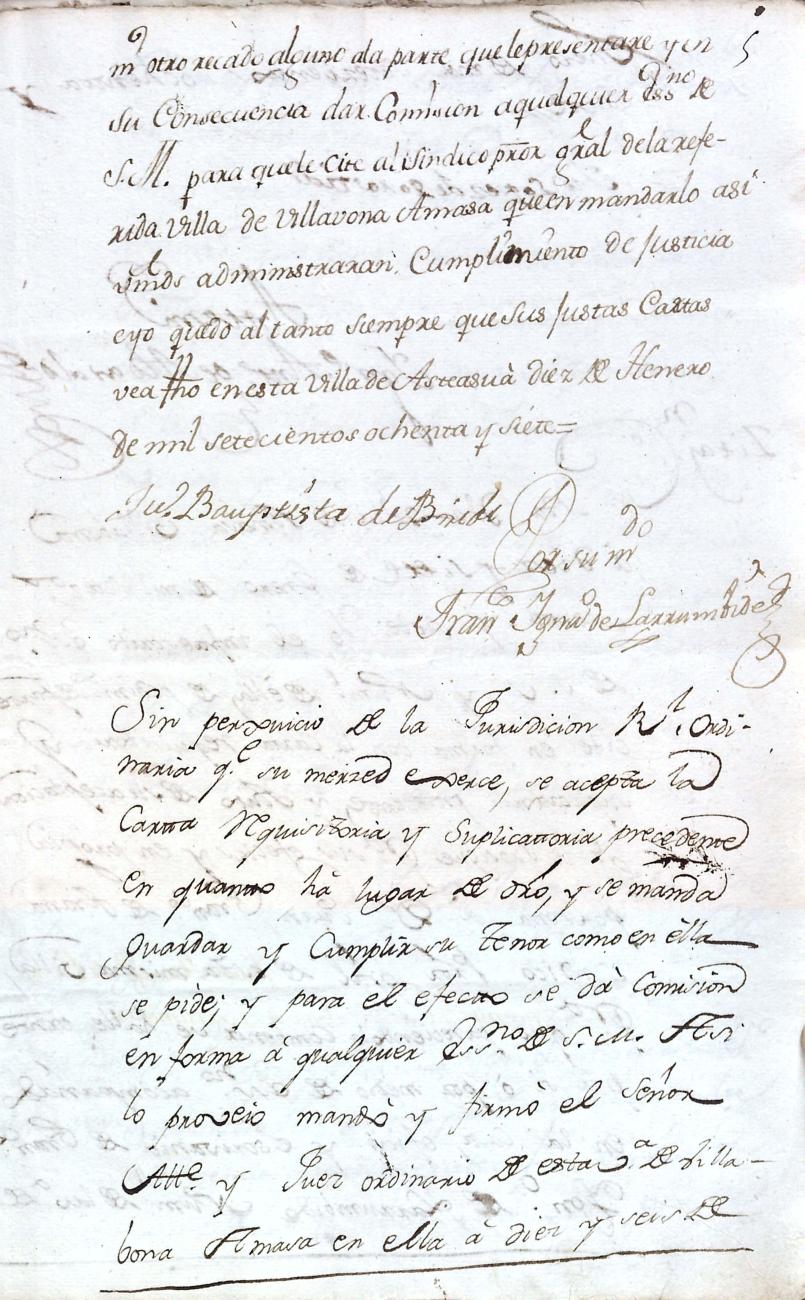 5
ni otro recado alguno ala parte que lepresentare y en
su Consecuencia dar Comision aqualquier Essno de
S. M. para quele cite al Sindico pror gral de la refe-
rida Villa de Villavona Amasa que en mandarlo asi
vmds administraran Cumplimiento de Justicia
e yo quedo al tanto siempre que sus Justas Cartas
vea fho en esta Villa de Asteasu à diez de Henero
de mil setecientos ochenta y siete=
Jun Bauptista de
Por su mdo
Franco Ignao de Larrumbide
Sin perxuicio de la Jurisdicion Rl. Ordi-
naria qe su merzed exerce, se acepta la
Cartta Requisitoria y Suplicattoria precedente
en quanto hà lugar de dro, y se manda
Guardar y Cumplir su tenor como en èlla
se pide; y para èl efecto se dà Comision
en forma à qualquier Essno de S. M. Asi
lo proveio mandò y firmò el Señor
Alle y Juez ordinario de esta va de Villa-
bona Amasa en ella à diez y seis de